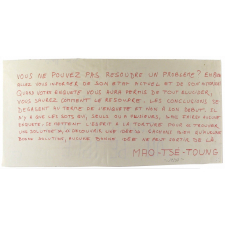 VOUS NE POUVEZ PAS RESOUDRE UN PROBLEME? EH BIEN
ALLEZ VOUS INFORMER DE SON ETAT ACTUEL ET DE SON HISTORIQUE
QUAND VOTRE ENQUETE VOUS AURA PERMIS DE TOUT ELUCIDER,
VOUS SAUREZ COMMENT LE RESOUDRE. LES CONCLUSIONS SE
DEGAGENT AU TERME DE L'ENQUETE ET NON A SON DEBUT. IL
N'Y A QUE LES SOTS QUI, SEULS OU A PLUSIEURS, SANS FAIRE AUCUNE
ENQUETE SE METTENT L'ESPRIT A LA TORTURE POUR TROUVER
UNE SOLUTION, DECOUVRIR UNE IDEE. SACHONS BIEN QU'AUCUNE
BONNE SOLUTION, AUCUNE BONNE IDEE NE PEUT SORTIR DE LA.
MAO-TSE-TOUNG